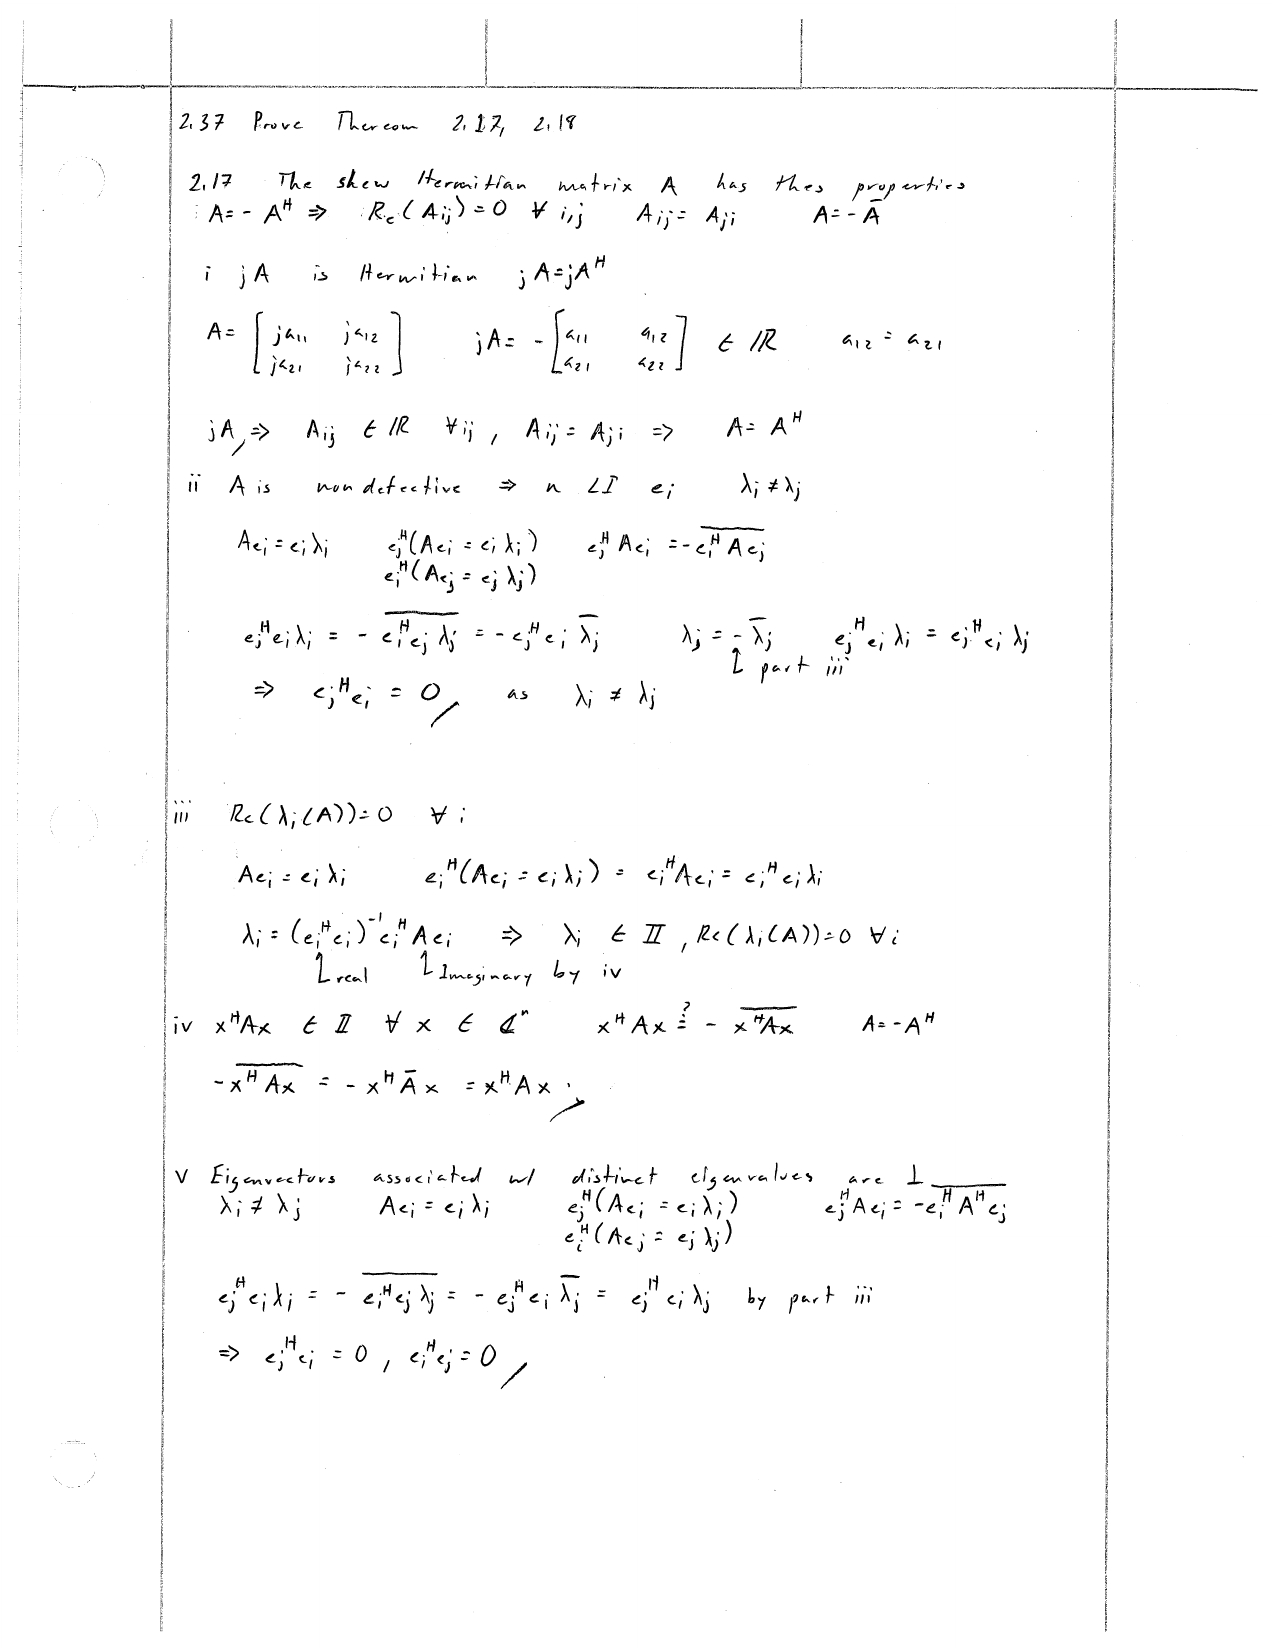 2.37 Prove Thereom 2.17, 2.18
2.17 The skew Hermitian matrix A has thes properties
A = -A^H ⇒ Re(A_ij) = 0 ∀ i,j A_ij = A_ji A = -Ā
i jA is Hermitian jA = jA^H
A = [ja_11 ja_12; ja_21 ja_22] jA = -[a_11 a_12; a_21 a_22] ∈ ℝ a_12 = a_21
jA, ⇒ A_ij ∈ ℝ ∀ ij, A_ij = A_ji ⇒ A = A^H
ii A is nondefective ⇒ n LI e_i λ_i ≠ λ_j
Ae_i = e_i λ_i e_j^H(Ae_i = e_i λ_i) e_j^H Ae_i = -\overline{e_i^H Ae_j}
e_i^H(Ae_j = e_j λ_j)
e_j^H e_i λ_i = -\overline{e_i^H e_j λ_j} = -e_j^H e_i \overline{λ_j} λ_j = -\overline{λ_j} e_j^H e_i λ_i = e_j^H e_i λ_j
↑ part iii
⇒ e_j^H e_i = 0, as λ_i ≠ λ_j
iii Re(λ_i(A)) = 0 ∀ i
Ae_i = e_i λ_i e_i^H(Ae_i = e_i λ_i) = e_i^H Ae_i = e_i^H e_i λ_i
λ_i = (e_i^H e_i)^{-1} e_i^H Ae_i ⇒ λ_i ∈ II, Re(λ_i(A)) = 0 ∀ i
↑ real ↑ Imaginary by iv
iv x^H Ax ∈ II ∀ x ∈ ℂ^n x^H Ax ≟ -\overline{x^H Ax} A = -A^H
-\overline{x^H Ax} = -x^H Ā x = x^H Ax
v Eigenvectors associated w/ distinct eigenvalues are ⊥
λ_i ≠ λ_j Ae_i = e_i λ_i e_j^H(Ae_i = e_i λ_i) e_j^H Ae_i = -\overline{e_i^H A^H e_j}
e_i^H(Ae_j = e_j λ_j)
e_j^H e_i λ_i = -\overline{e_i^H e_j λ_j} = -e_j^H e_i \overline{λ_j} = e_j^H e_i λ_j by part iii
⇒ e_j^H e_i = 0, e_i^H e_j = 0